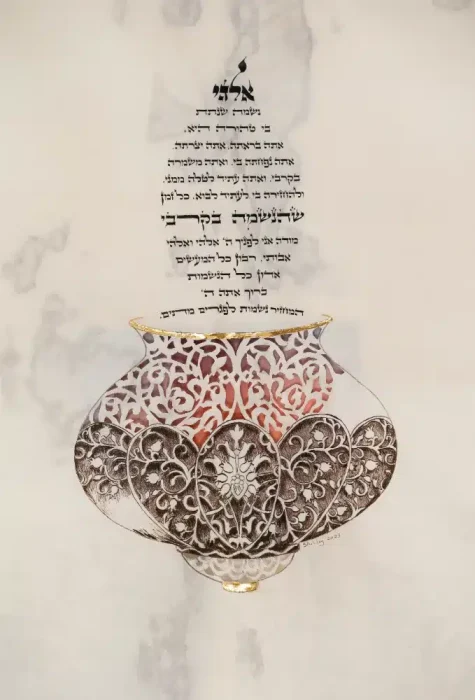 אלהי
נשמה שנתת
בי טהורה היא,
אתה בראתה, אתה יצרתה,
אתה נפחתה בי, ואתה משמרה
בקרבי, ואתה עתיד לטלה ממני,
ולהחזירה בי לעתיד לבוא, כל זמן
שהנשמה בקרבי
מודה אני לפניך ה' אלהי ואלהי
אבותי, רבון כל המעשים
אדון כל הנשמות
ברוך אתה ה'
המחזיר נשמות לפגרים מתים.